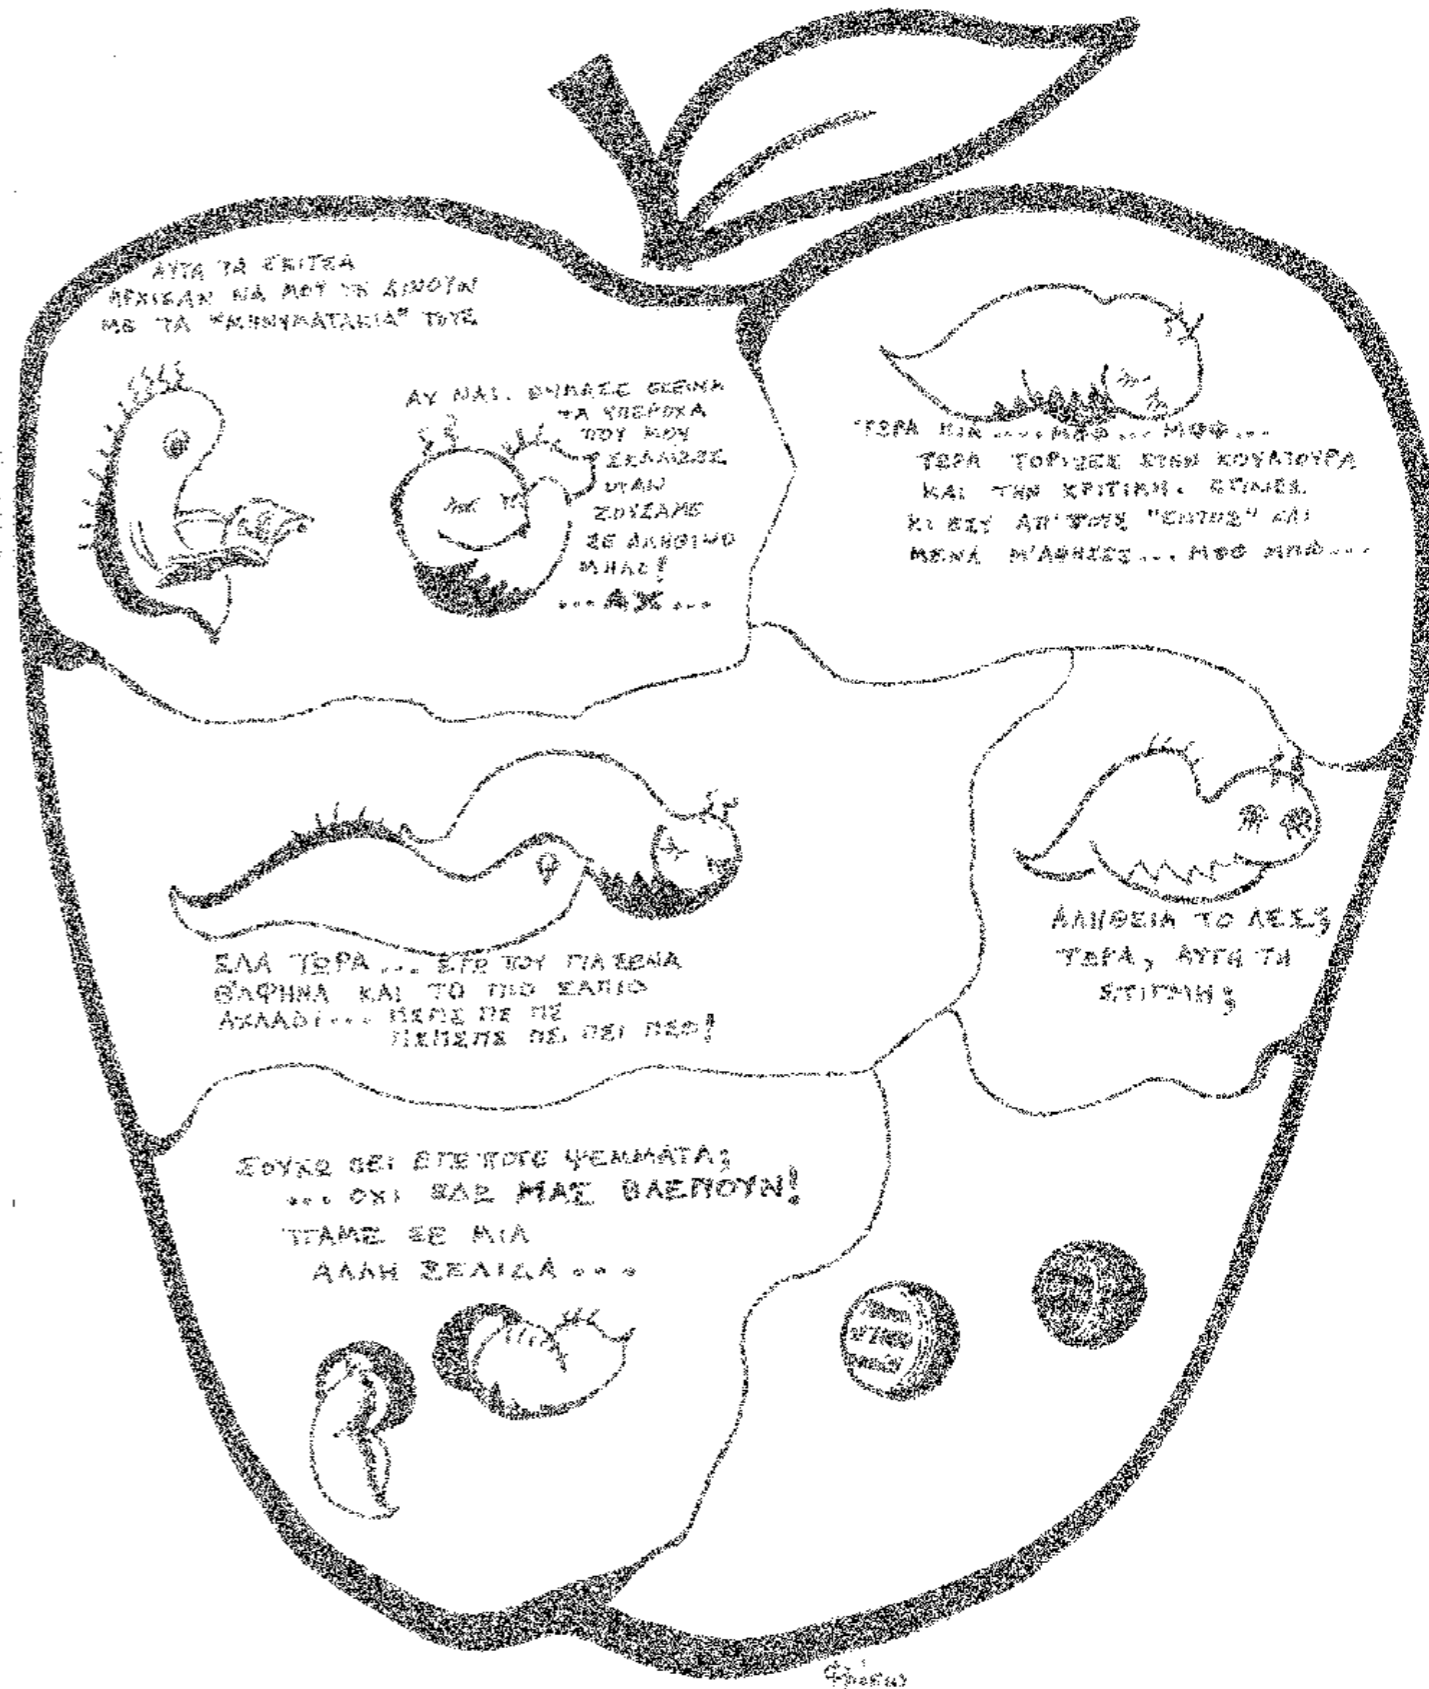 ΑΥΤΑ ΤΑ ΣΚΙΤΣΑ
ΑΡΧΙΣΑΝ ΝΑ ΜΟΥ ΤΗ ΔΙΝΟΥΝ
ΜΕ ΤΑ "ΜΗΝΥΜΑΤΑΚΙΑ" ΤΟΥΣ
ΑΥ ΝΑΙ. ΘΥΜΑΣΕ ΕΚΕΙΝΑ
ΤΑ ΥΠΕΡΟΧΑ
ΠΟΥ ΜΟΥ
ΣΚΑΛΙΖΕΣ
ΟΤΑΝ
ΖΟΥΣΑΜΕ
ΣΕ ΑΛΗΘΙΝΟ
ΜΗΛΟ!
...ΑΧ...
ΤΩΡΑ ΠΙΑ ... ΜΦΦ ... ΜΦΦ ...
ΤΩΡΑ ΤΟΡΙΞΕΣ ΣΤΗΝ ΚΟΥΛΤΟΥΡΑ
ΚΑΙ ΤΗΝ ΚΡΙΤΙΚΗ. ΕΓΙΝΕΣ
ΚΙ ΕΣΥ ΑΠ' ΤΟΥΣ "ΕΝΤΟΣ" ΚΑΙ
ΜΕΝΑ Μ'ΑΦΗΣΕΣ ... ΜΦΦ ΜΠΩ...
ΕΛΑ ΤΩΡΑ ... ΕΓΩ ΠΟΥ ΓΙΑ ΣΕΝΑ
Θ'ΑΦΗΝΑ ΚΑΙ ΤΟ ΠΙΟ ΣΑΠΙΟ
ΑΧΛΑΔΙ... ΠΕΠΕ ΠΕ ΠΕ
ΠΕΠΕΠΕ ΠΕ, ΠΕΙ ΠΕΦ!
ΑΛΗΘΕΙΑ ΤΟ ΛΕΣ;
ΤΩΡΑ, ΑΥΤΗ ΤΗ
ΣΤΙΓΜΗ;
ΣΟΥΧΩ ΠΕΙ ΕΓΩ ΠΟΤΕ ΨΕΜΜΑΤΑ;
... ΟΧΙ ΕΔΩ ΜΑΣ ΒΛΕΠΟΥΝ!
ΠΑΜΕ ΣΕ ΜΙΑ
ΑΛΛΗ ΣΕΛΙΔΑ...